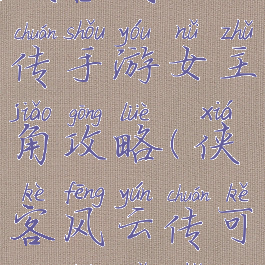 chuán shǒu yóu nǚ zhǔ
传手游女主
jiǎo gōng lüè xiá
角攻略(侠
kè fēng yún chuán kě
客风云传可